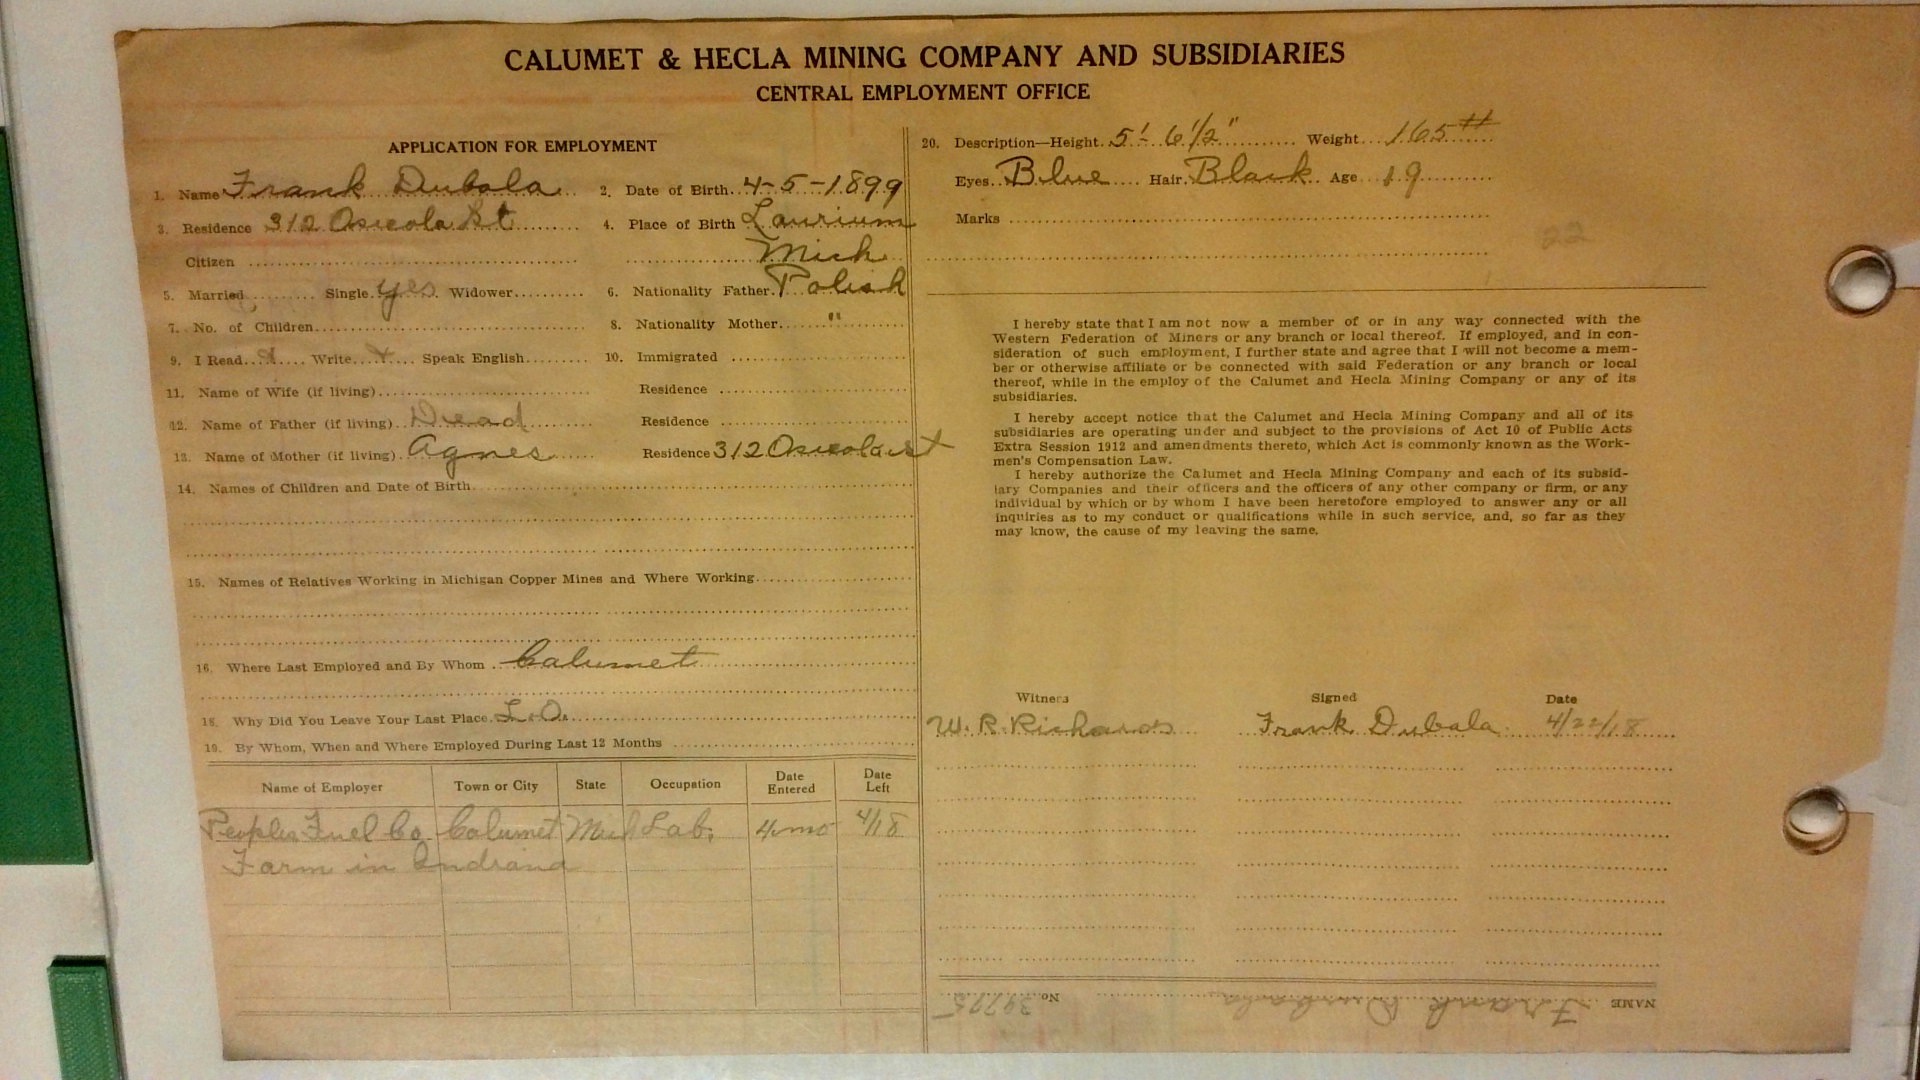 CALUMET & HECLA MINING COMPANY AND SUBSIDIARIES
CENTRAL EMPLOYMENT OFFICE
APPLICATION FOR EMPLOYMENT
1. Name Frank Dubala 2. Date of Birth 4-5-1899
3. Residence 312 Osceola St 4. Place of Birth Laurium
Citizen Mich
5. Married Single yes Widower 6. Nationality Father Polish
7. No. of Children 8. Nationality Mother "
9. I Read x Write x Speak English 10. Immigrated
11. Name of Wife (if living) Residence
12. Name of Father (if living) Dead Residence
13. Name of Mother (if living) Agnes Residence 312 Osceola st
14. Names of Children and Date of Birth
15. Names of Relatives Working in Michigan Copper Mines and Where Working
16. Where Last Employed and By Whom Calumet
18. Why Did You Leave Your Last Place L.O.
19. By Whom, When and Where Employed During Last 12 Months
Name of Employer Town or City State Occupation Date Entered Date Left
Peoples Fuel Co. Calumet Mich Lab. 4 mo 4/18
Farm in Indiana
20. Description—Height 5'-6 1/2" Weight 165#
Eyes Blue Hair Black Age 19
Marks
22
I hereby state that I am not now a member of or in any way connected with the
Western Federation of Miners or any branch or local thereof. If employed, and in con-
sideration of such employment, I further state and agree that I will not become a mem-
ber or otherwise affiliate or be connected with said Federation or any branch or local
thereof, while in the employ of the Calumet and Hecla Mining Company or any of its
subsidiaries.
I hereby accept notice that the Calumet and Hecla Mining Company and all of its
subsidiaries are operating under and subject to the provisions of Act 10 of Public Acts
Extra Session 1912 and amendments thereto, which Act is commonly known as the Work-
men's Compensation Law.
I hereby authorize the Calumet and Hecla Mining Company and each of its subsid-
iary Companies and their officers and the officers of any other company or firm, or any
individual by which or by whom I have been heretofore employed to answer any or all
inquiries as to my conduct or qualifications while in such service, and, so far as they
may know, the cause of my leaving the same.
Witness Signed Date
W. R. Richards Frank Dubala 4/22/18
NAME Frank Dubala No. 39775